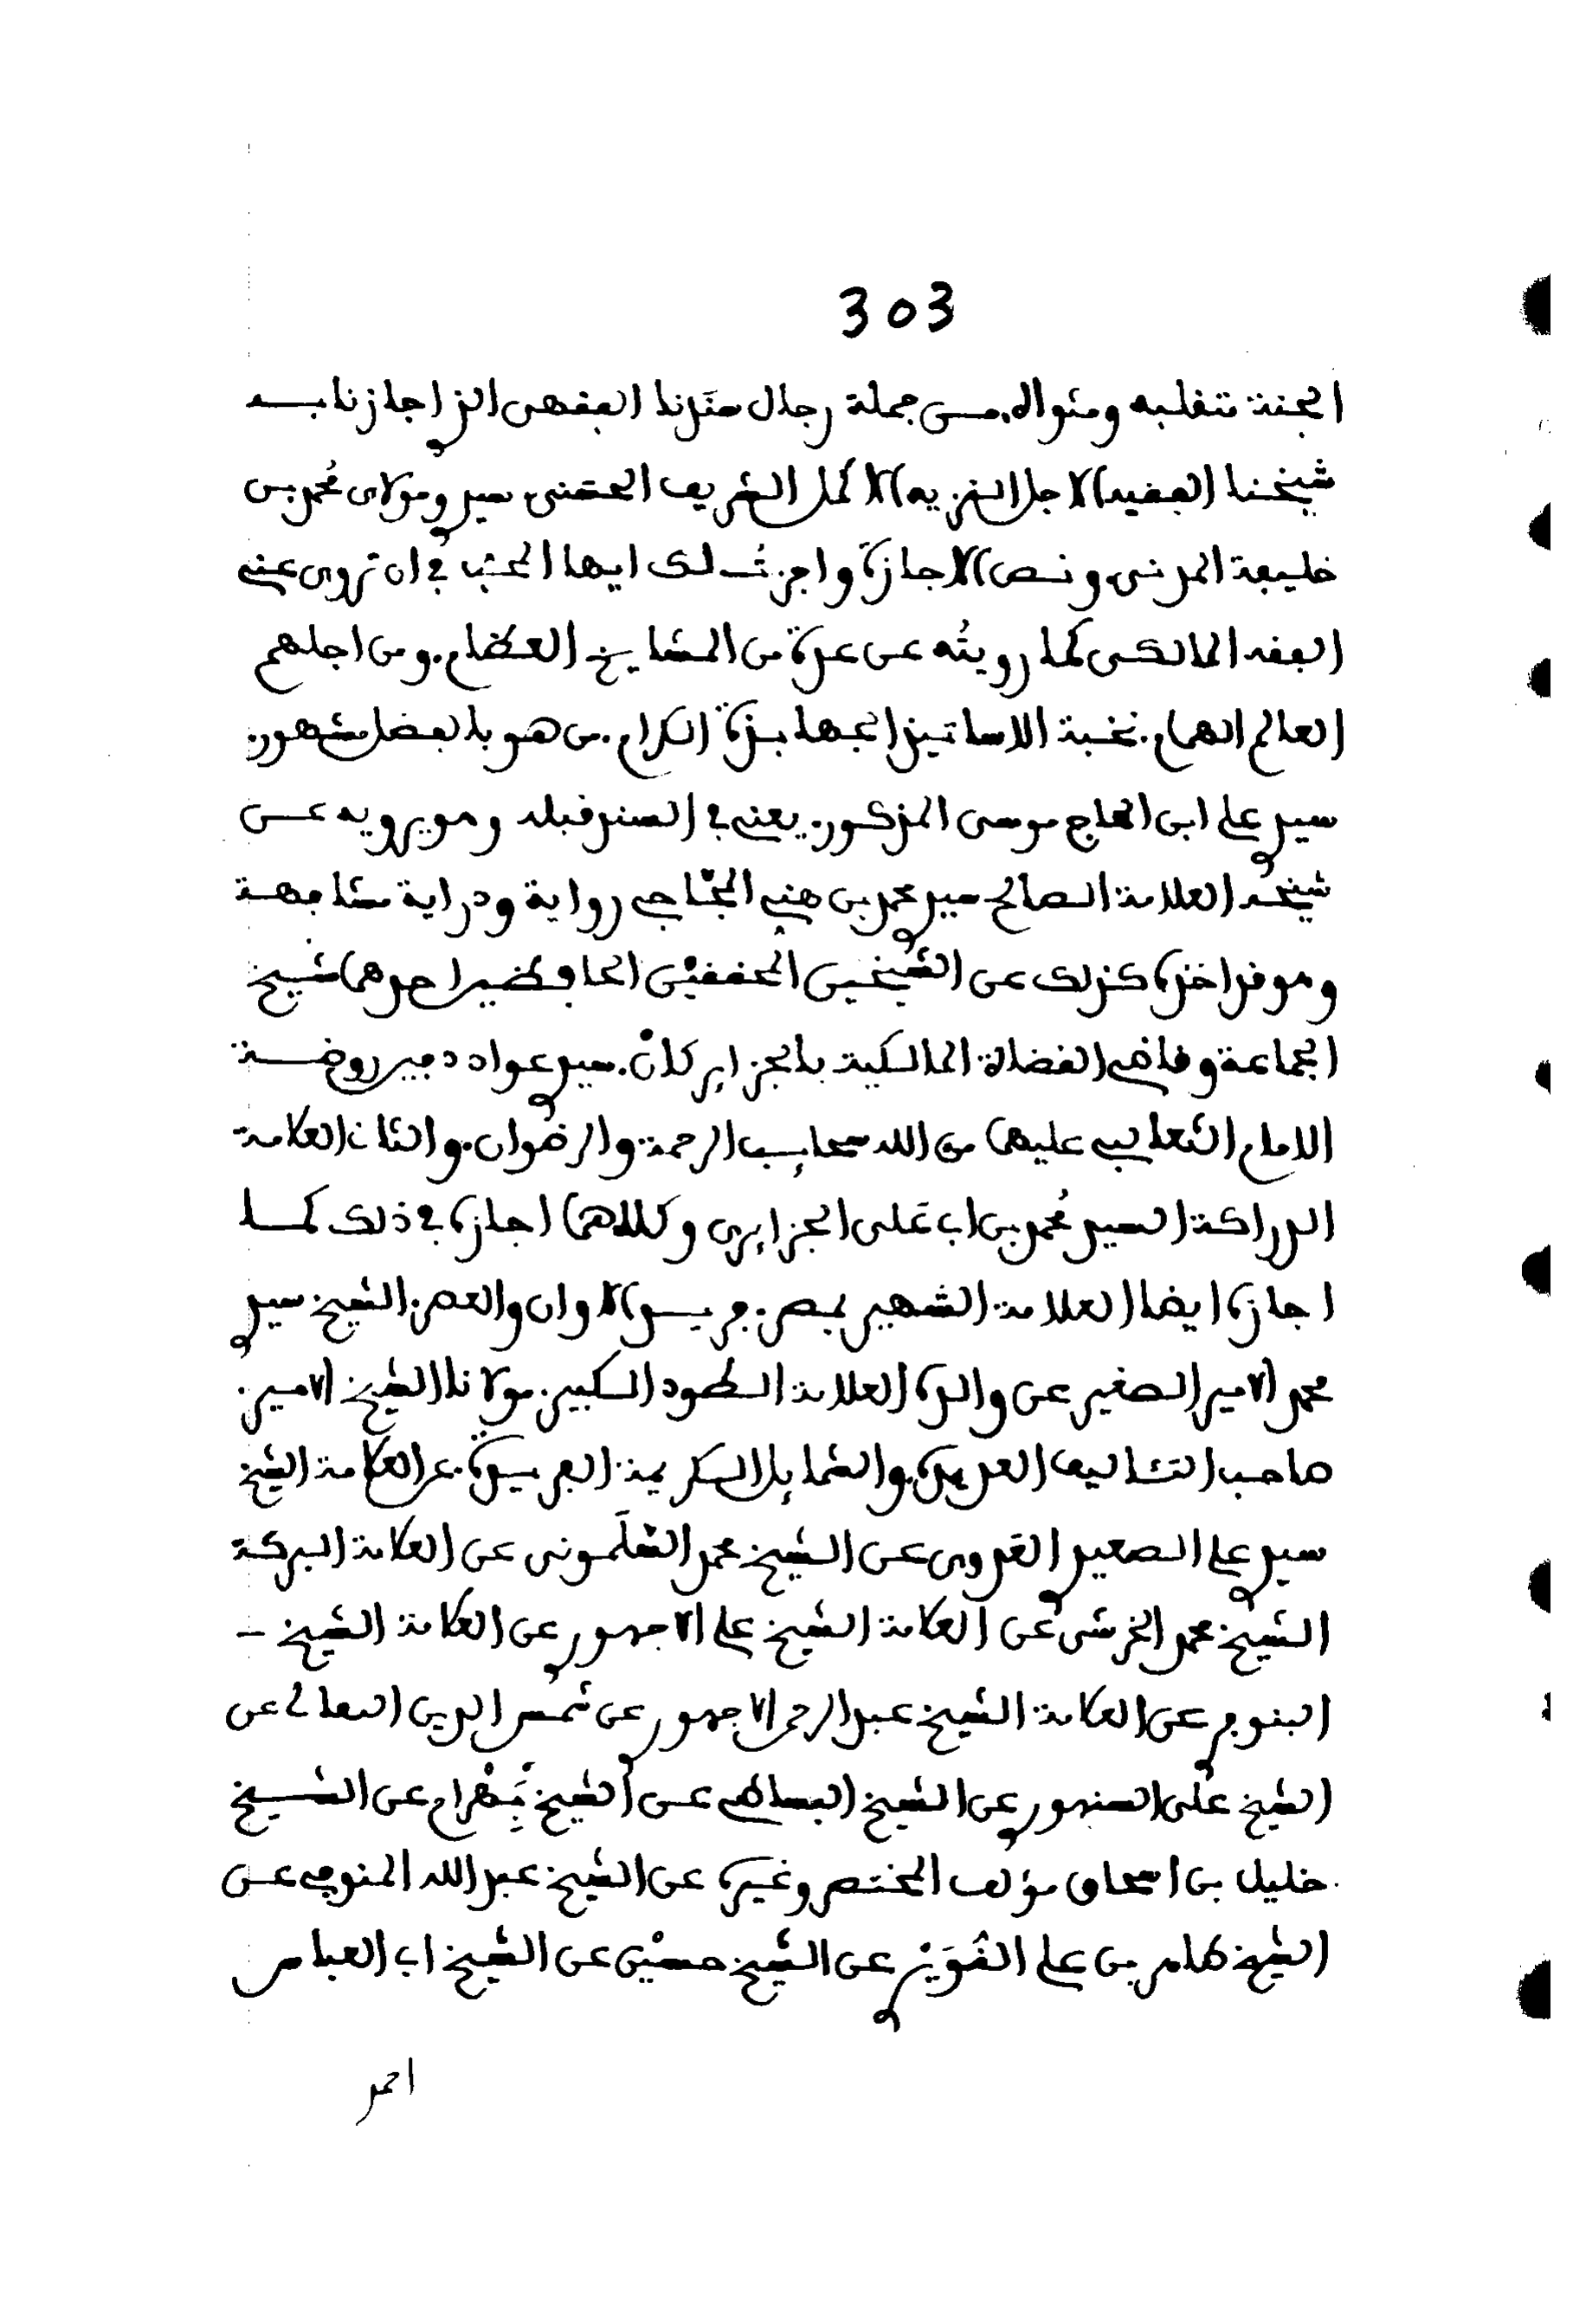 303
الجنة متقلبه ومثواه. من جملة رجال سندنا الفقهى الذى اجازنا به
شيخنا الفقيه الاجل النزيه الاكمل الشريف الحسنى سيدي ومولاى محمد بن
خليفة المدنى ونص الاجازة واجزتُ لك ايها المحب في ان تروى عني
الفقه المالكى كما رويتُه عن عدة من المشايخ العظام. ومن اجلهم
العالم الهمام. نخبة الاساتيذ الجهابذة الكرام. من هو بالفضل مشهور.
سيدي علي ابن الحاج موسى المذكور. يعني في السند قبله وهو يرويه عن
شيخه العلامة الصالح سيدي محمد بن هني المجّاجي رواية ودراية مشافهة
وهو قد اخذه كذلك عن الشيخين المحققيْن الحافظين احدهما شيخ
الجماعة وقاضي القضاة المالكية بالجزاير كانْ. سيدي عواد دفين روضة
الامام الثعالبي عليهما من الله سحايب الرحمة والرضوان. والثاني العلامة
الدراكة السيد مُحمد بن ابي عَلى الجزايرى وكلاهما اجازه في ذلك كما
اجازه ايضا العلامة الشهير بمصر. فريد الاوان والعصر. الشيخ سيدي
محمد الامير الصغير عن والده العلامة الطود الكبير. مولانا الشيخ الامير.
صاحب التئاليف العديدة. والشمايل الكريمة الفريدة. عن العلامة الشيخ
سيدي علي الصعيدي العدوى عن الشيخ محمد السَّلَمونى عن العلامة البركة
الشيخ محمد الخرشى عن العلامة الشيخ علي الاجهوري عن العلامة الشيخ -
البنوفري عن العلامة الشيخ عبد الرحمن الاجهوري عن شمس الدين اللقاني عن
الشيخ عَلى السنهوري عن الشيخ البساطي عن الشيخ بَهْرام عن الشيخ
خليل بن اسحاق مؤلف المختصر وغيره عن الشيخ عبد الله المنوفي عن
الشيخ طاهر بن علي القُوَيْري عن الشيخ حسيْن عن الشيخ ابي العباس
احمد